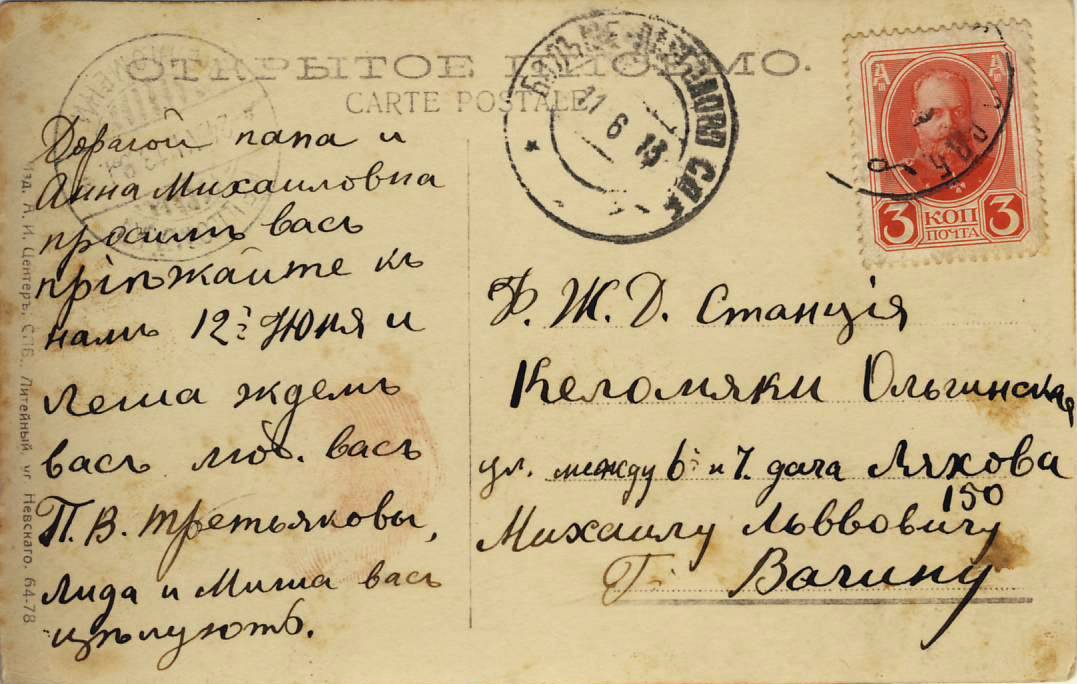 ОТКРЫТОЕ ПИСЬМО.
CARTE POSTALE
11 6 13
3 КОП 3
ПОЧТА
Дорагой папа и
Анна Михаиловна
просимъ васъ
пріѣжайте къ
намъ 12го Июня и
Леша ждемъ
васъ люб. васъ
П. В. Третьяковы,
Лида и Миша васъ
цѣлуютъ.
Ф. Ж. Д. Станція
Келомяки Ольгинская
ул. между 6й и 7. дача Ляхова
150
Михаилу Львовичу
Г. Вагину
Изд. А. И. Центеръ, СПБ., Литейный, уг. Невскаго, 64-78